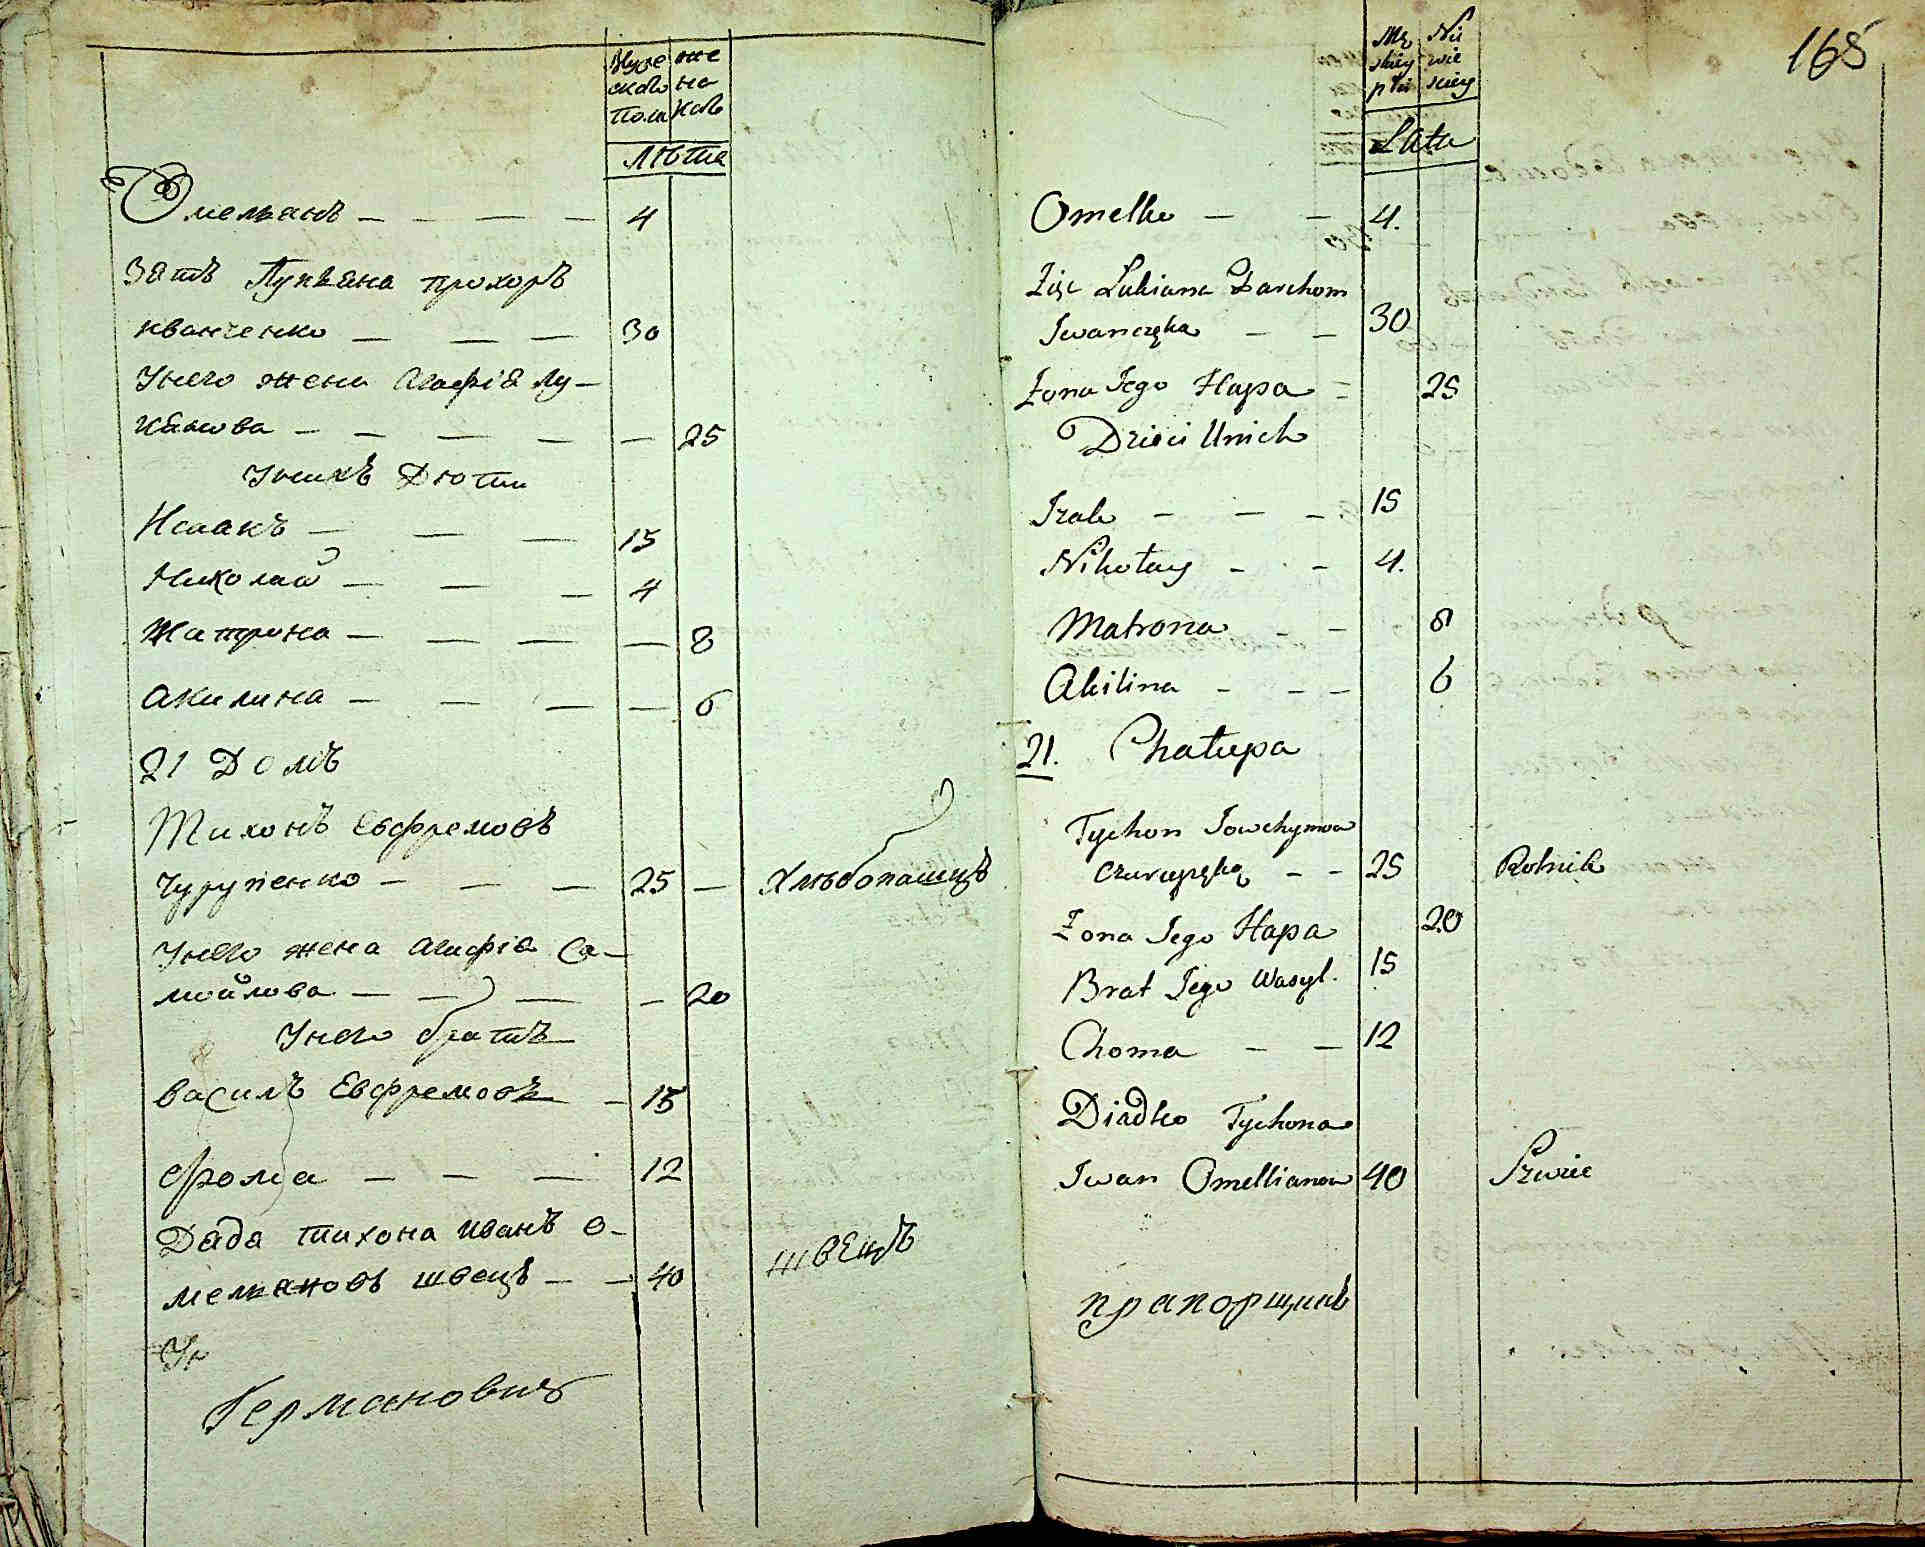 Мужеска пола
женска
Лѣта
Омельянъ — — — — 4
Зять Лукъяна прохоръ
иванченко — — — 30
Унего жена Агафія лу-
кянова — — — — — 25
Унихъ Дѣти
Исаакъ — — — 15
Николай — — — 4
Матрона — — — — 8
Акилина — — — — 6
21 Домъ
Тихонъ Евфремовъ
Чурупенко — — — 25 — Хлѣбопашецъ
Унего жена Агафія Са-
мойлова — — — — 20
Унего братъ
Василъ Евфремовъ — 15
Фома — — — 12
Дядя тихона иванъ о-
мельяновъ швецъ — — 40 швецъ
Ун
Германовичъ
165
Męskiey płci
Niewieskiey
Lata
Omelko — — 4.
Zięc Lukiana Parchom
Iwanczęko — — 30
Żona Jego Hapa = 25
Dzieci Unich
Izak — — — 15
Nikołay — — 4.
Matrona — — 8
Akilina — — — 6
21. Chałupa
Tychon Jowchymow
Czurupęko — — 25 Rolnik
Żona Jego Hapa 20
Brat Jego Wasyl. 15
Choma — — 12
Diadko Tychona
Iwan Omellianow 40 Szwiec
прапорщикъ